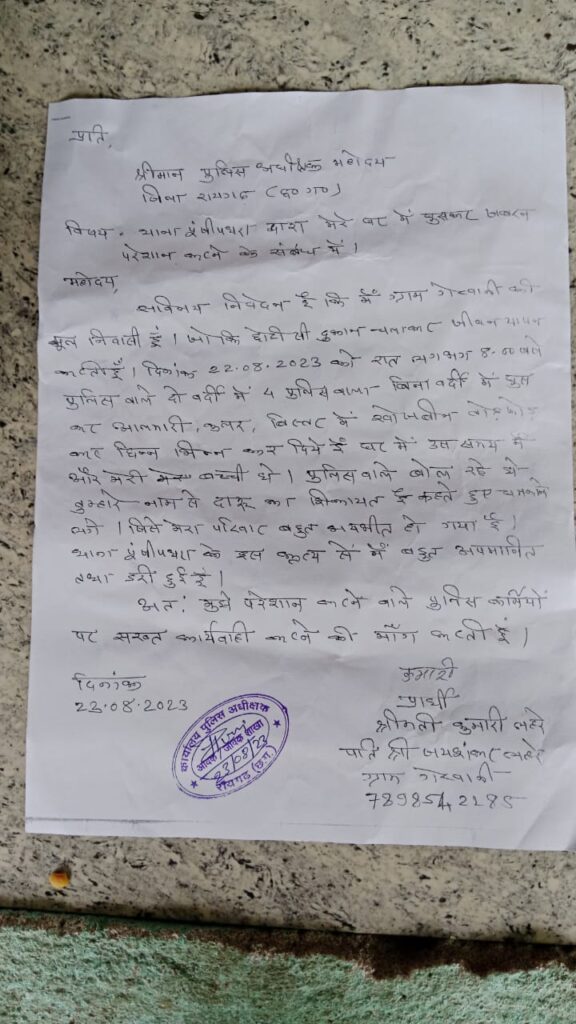 प्रति,
श्रीमान पुलिस अधीक्षक महोदय
जिला रायगढ (छ०ग०)
विषय - थाना पूंजीपथरा द्वारा मेरे घर में घुसकर जबरन
परेशान करने के संबंध में।
महोदय,
सविनय निवेदन है कि मैं ग्राम गेरवानी की
मूल निवासी हूं। जो कि छोटी सी दुकान चलाकर जीवन यापन
करती हूँ। दिनांक 22.08.2023 को रात लगभग 8.00 बजे
पुलिस वाले दो वर्दी में 4 पुलिस वाला बिना वर्दी में घुस
कर आलमारी, कुलर, बिस्तर में खोजबीन तोड़ फोड़
कर छिन्न भिन्न कर दिये हैं घर में उस समय मैं
और मेरी बच्ची थे। पुलिस वाले बोल रहे थे
तुम्हारे नाम से दारू का शिकायत है कहते हुए धमकाने
लगे। जिसे मेरा परिवार बहुत भयभीत हो गया है।
थाना पूंजीपथरा के इस कृत्य से मैं बहुत अपमानित
तथा डरी हुई हूं।
अतः मुझे परेशान करने वाले पुलिस कर्मियों
पर सख्त कार्यवाही करने की माँग करती हूं।
दिनांक
23.08.2023
कुमारी
प्रार्थी
श्रीमती कुमारी लहरे
पति श्री जयशंकर लहरे
ग्राम गेरवानी
7898542185
कार्यालय पुलिस अधीक्षक
आवक / जावक शाखा
23/08/23
रायगढ़ (छ.ग.)